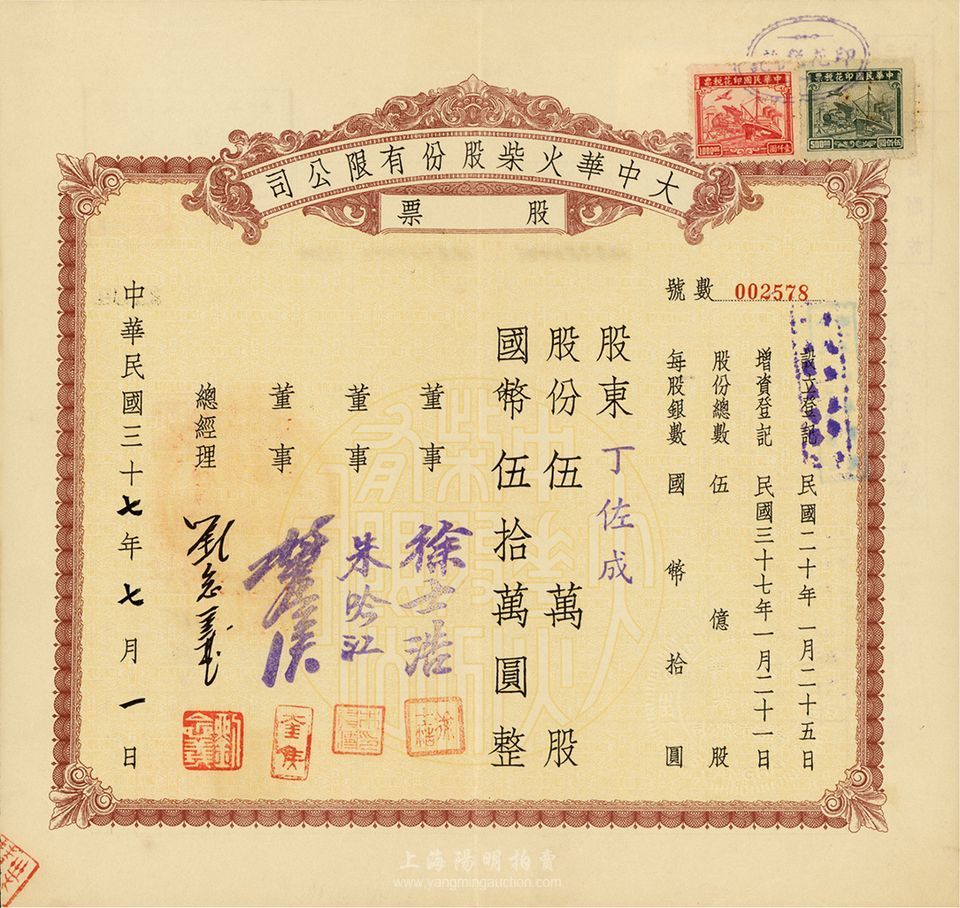 大中華火柴股份有限公司
股票
中華民國印花稅票
1000圓
中華民國印花稅票
500圓
號數 002578
設立登記 民國二十年一月二十五日
增資登記 民國三十七年一月二十一日
股份總數 伍億股
每股銀數 國幣拾圓
股東 丁佐成
股份伍萬股
國幣伍拾萬圓整
董事 徐士浩
董事 朱吟江
董事
總經理 劉念義
中華民國三十七年七月一日
上海陽明拍賣
www.yangmingauction.com